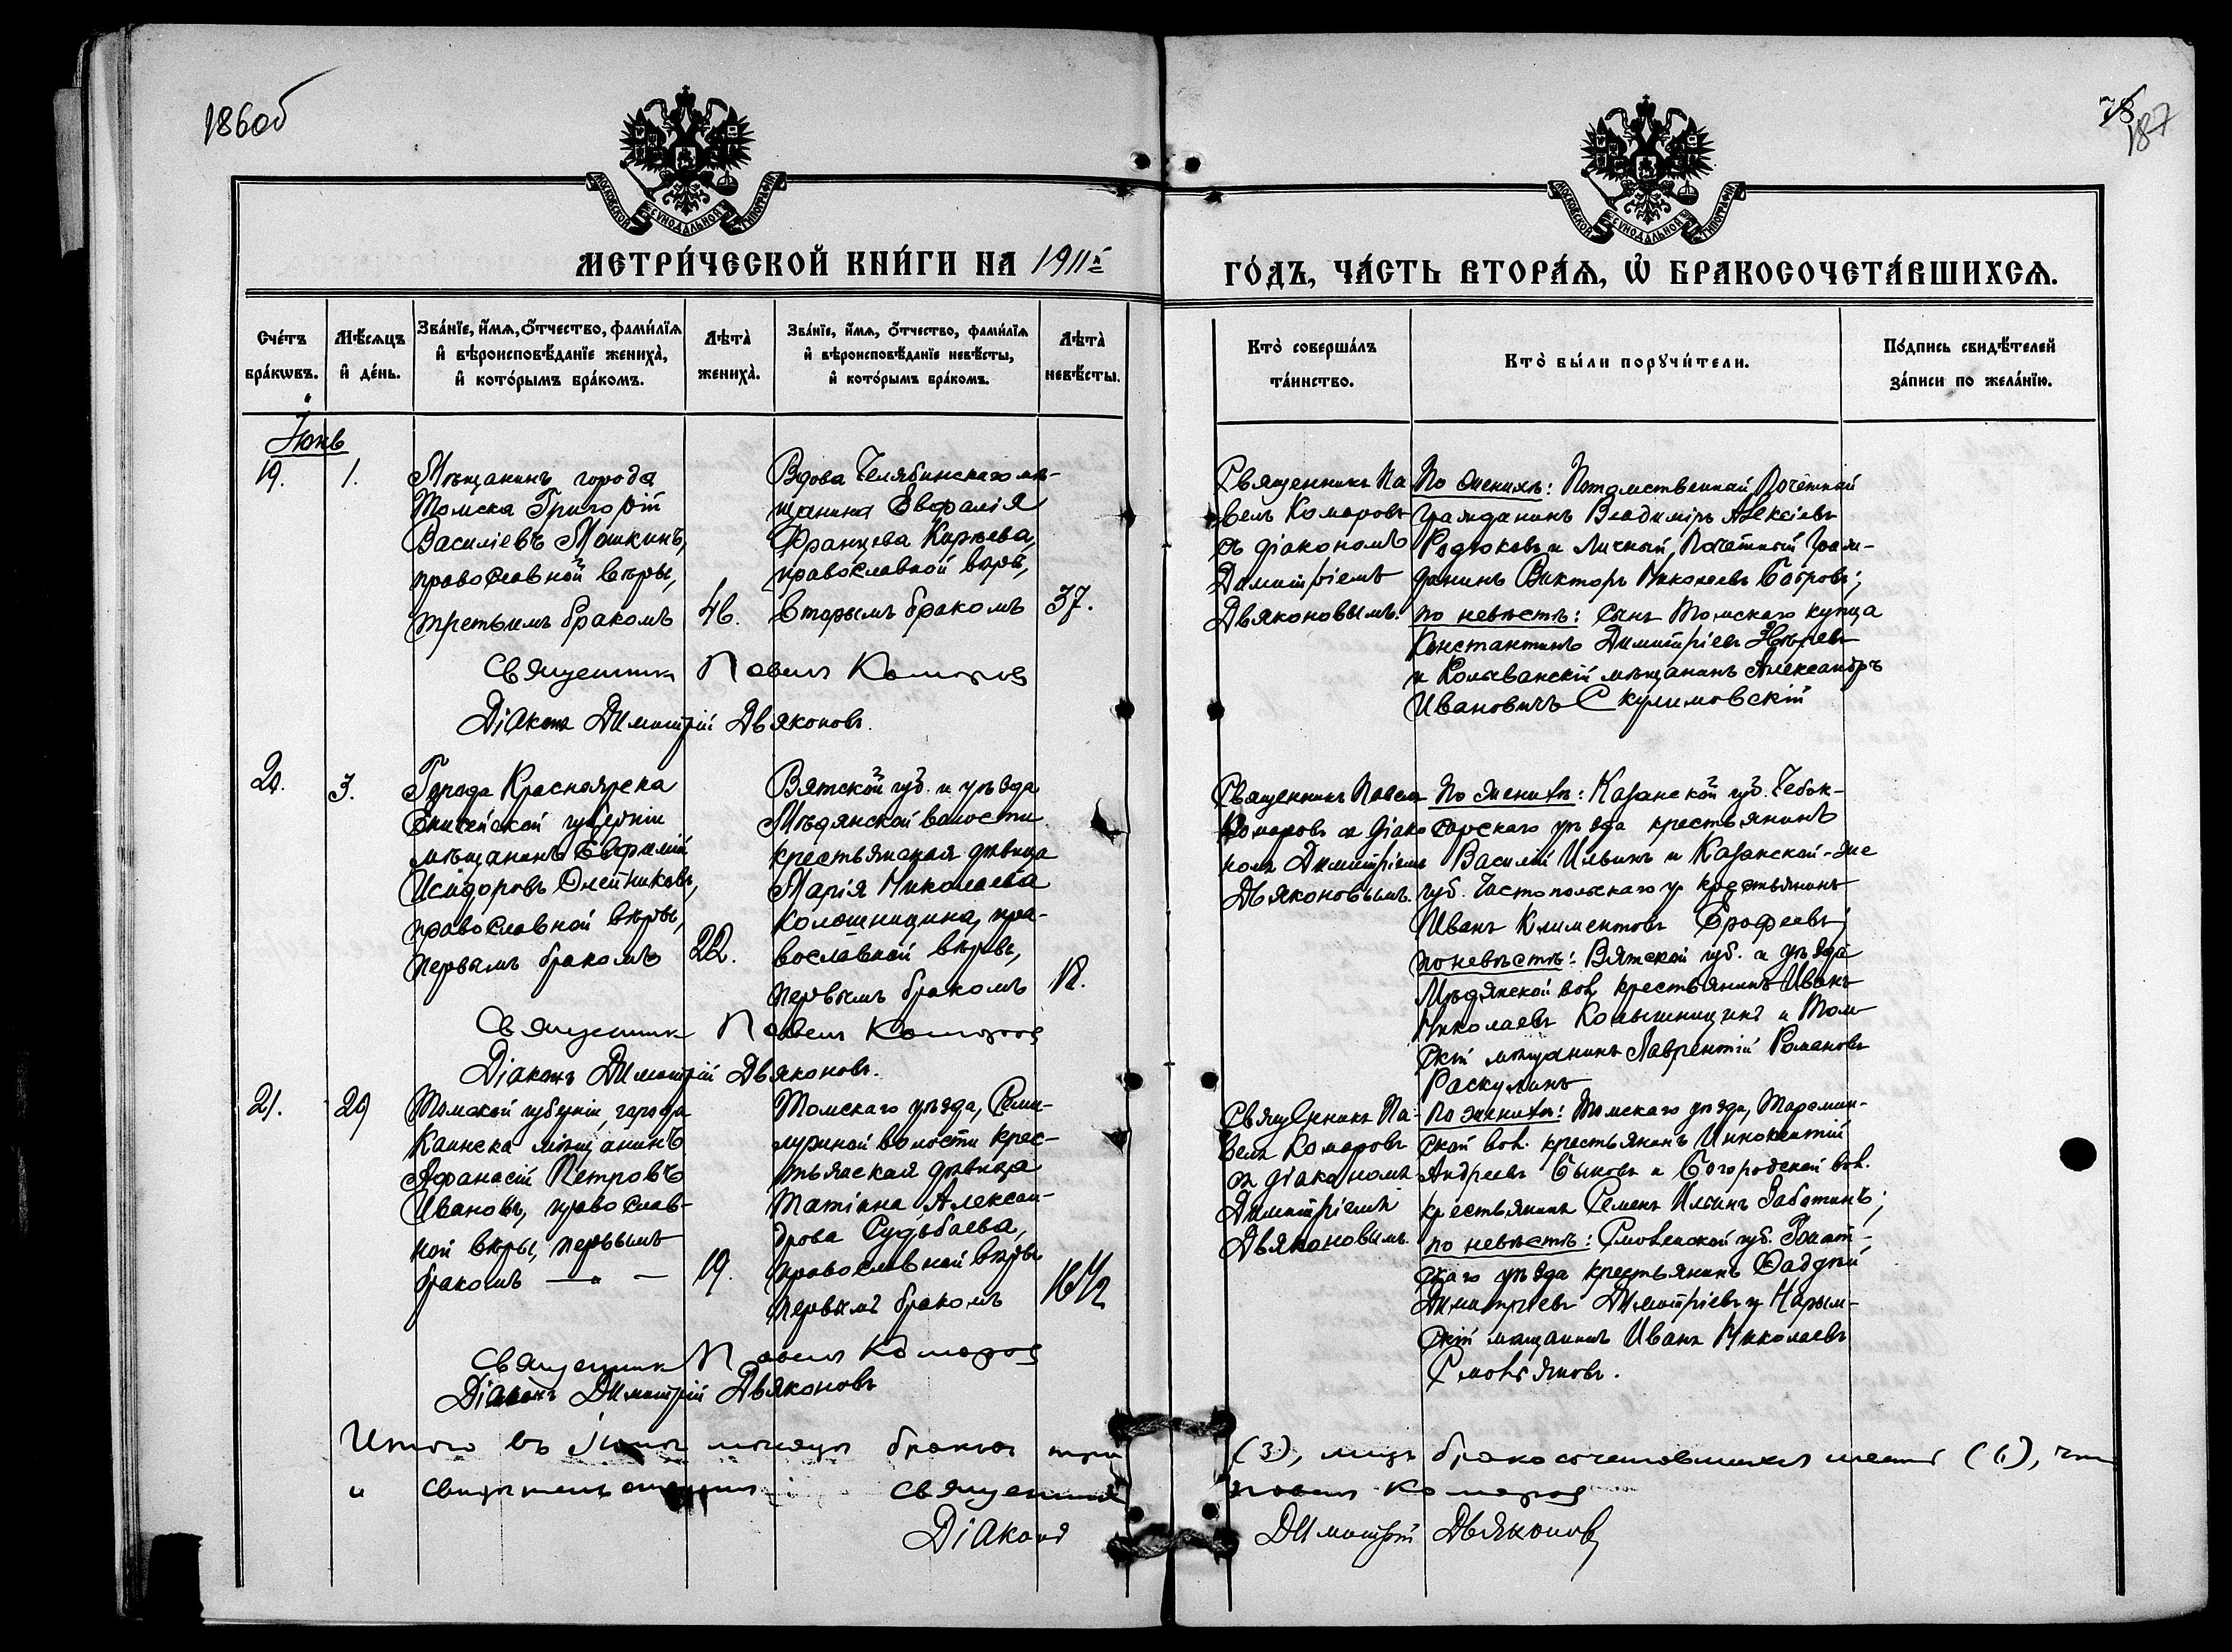 186об
78
187
МОСКОВСКОЙ СѴНОДАЛЬНОЙ ТИПОГРАФІИ
МОСКОВСКОЙ СѴНОДАЛЬНОЙ ТИПОГРАФІИ
МЕТРИ́ЧЕСКОЙ КНИ́ГИ НА 1911й
ГО́ДЪ, ЧА́СТЬ ВТОРА́Ѧ, Ѡ҆ БРАКОСОЧЕТА́ВШИХСѦ.
Сче́тъ
бра́кѡвъ.
Мѣ́сѧцъ
и҆ де́нь.
Зва́нїе, и҆́мѧ, ѻ҆́тчество, фами́лїѧ
и҆ вѣроисповѣ́данїе жениха̀,
и҆ кото́рымъ бра́комъ.
Лѣта̀
жениха̀.
Зва́нїе, и҆́мѧ, ѻ҆́тчество, фами́лїѧ
и҆ вѣроисповѣ́данїе невѣ́сты,
и҆ кото́рымъ бра́комъ.
Лѣта̀
невѣ́сты.
Кто̀ соверша́лъ
та́инство.
Кто̀ бы́ли порꙋчи́тели.
По́дпись свидѣ́телей
за́писи по жела́нїю.
Іюнь
19.
1.
Мѣщанинъ города
Томска Григорій
Василіевъ Мошкинъ,
православной вѣры,
третьимъ бракомъ
46.
Вдова Челябинскаго мѣ-
щанина Евфалія
Францева Карѣева,
православной вѣры,
вторымъ бракомъ
37.
Священникъ Па
велъ Комаровъ
съ діакономъ
Димитріемъ
Дьяконовымъ.
По женихѣ: Потомственный Почетный
гражданинъ Владиміръ Алексіевъ
Родюковъ и Личный Почетный граж-
данинъ Викторъ Николаевъ Бобровъ;
по невѣстѣ: сынъ Томскаго купца
Константинъ Димитріевъ
и Колыванскій мѣщанинъ Александръ
Ивановичъ Скулимовскій
Священникъ Павелъ Комаровъ
Діаконъ Димитрій Дьяконовъ.
20.
3.
Города Красноярска
Енисейской губерніи
мѣщанинъ Евфимій
Исидоровъ Олейниковъ,
православной вѣры,
первымъ бракомъ
22.
Вятской губ. и уѣзда
Мѣдянской волости
крестьянская дѣвица
Марія Николаева
Колошницина, пра-
вославной вѣры,
первымъ бракомъ
18.
Священникъ Павелъ
Комаровъ съ діако
номъ Димитріемъ
Дьяконовымъ.
По женихѣ: Казанской губ. Чебок-
сарскаго уѣзда крестьянинъ
Василій Ильинъ и Казанской-же
губ. Чистопольскаго у крестьянинъ
Иванъ Климентовъ Ерофеевъ;
по невѣстѣ: Вятской губ. и уѣзда
Мѣдянской вол. крестьянинъ Иванъ
Николаевъ Колышницинъ и Том-
скій мѣщанинъ Лаврентій Романовъ
Раскулинъ
Священникъ Павелъ Комаровъ
Діаконъ Димитрій Дьяконовъ.
21.
29
Томской губерніи, города
Каинска мѣщанинъ
Афанасій Петровъ
Ивановъ, православ-
ной вѣры, первымъ
бракомъ — „ —
19.
Томскаго уѣзда, Семи-
лужной волости крес-
тьянская дѣвица
Татіана Алексан-
дрова Судьбаева,
православной вѣры
первымъ бракомъ
16½
Священникъ Па-
велъ Комаровъ
съ діакономъ
Димитріемъ
Дьяконовымъ.
По женихѣ: Томскаго уѣзда, Тарсмин-
ской вол. крестьянинъ Иннокентій
Андреевъ Быковъ и Богородской вол.
крестьянинъ Семенъ Ильинъ Заботинъ;
по невѣстѣ: Смоленской губ.
скаго уѣзда крестьянинъ Фаддей
Димитріевъ Димитріевъ и Нарым-
скій мѣщанинъ Иванъ Николаевъ
Смольяновъ.
Священникъ Павелъ Комаровъ
Діаконъ Димитрій Дьяконовъ
Итого въ Іюнѣ мѣсяцѣ браковъ три (3), лицъ бракосочетавшихся шесть (6), что
и свидѣтельствуемъ: Священникъ Павелъ Комаровъ
Діаконъ Димитрій Дьяконовъ